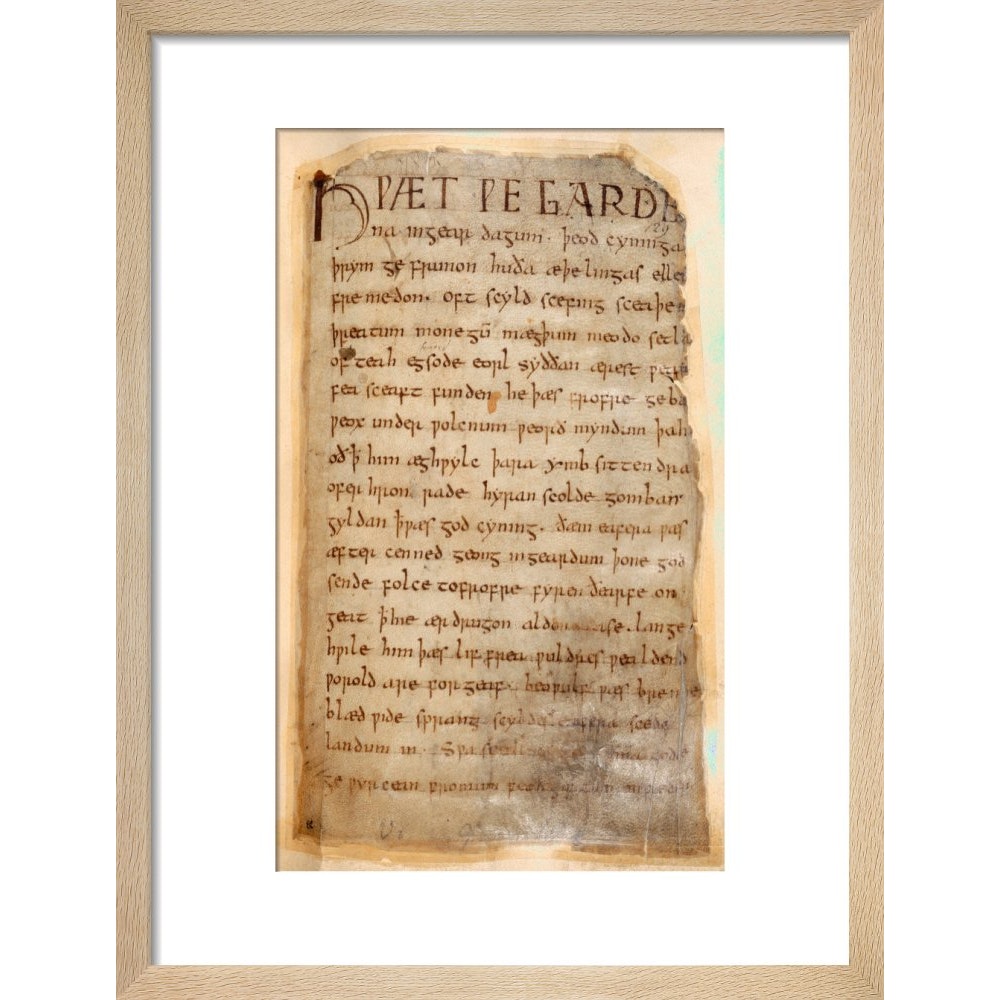 HǷÆT ǷE GARDE
129
na ingear dagum. þeod cyninga
þrym ge frunon huða æþelingas elle
fremedon. oft scyld scefing sceaþe
þreatum monegū mægþum meodo setla
of teah egsode eorl syððan ærest ƿear
fea sceaft funden he þæs frofre geba
ƿeox under ƿolcnum ƿeorð myndum þah
oð ꝥ him æghƿylc þara ymb sittendra
ofer hron rade hyran scolde gomban
gyldan ꝥ ƿæs god cyning. ðæm eafera ƿæs
æfter cenned geong ingeardum þone god
sende folce tofrofre fyren ðearfe on
geat ꝥ hie ær drugon aldor ase. lange
hƿile him þæs lif frea ƿuldres ƿealdend
ƿorold are forgeaf. beoƿulf ƿæs breme
blæd ƿide sprang scyldes eafera scede
landum in. Sƿa
ge ƿyrcean fromum feoh